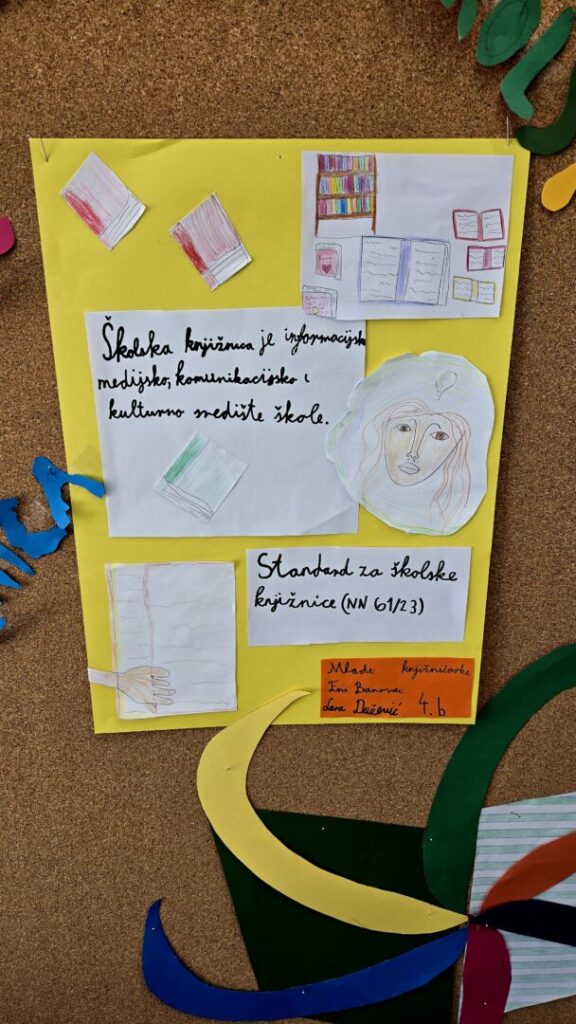 Školska knjižnica je informacijsko
medijsko, komunikacijsko i
kulturno središte škole.
Standard za školske
knjižnice (NN 61/23)
Mlade knjižničarke
Eni Banovac
Lara 4.b